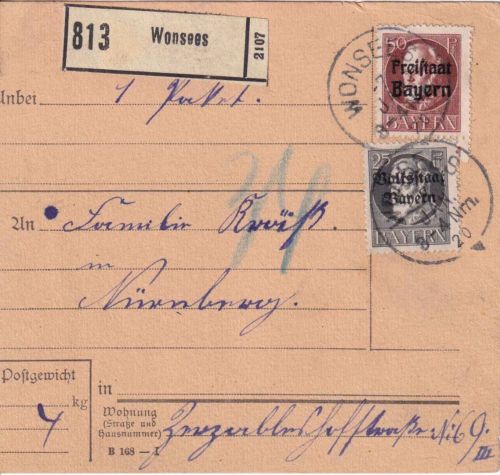 813 Wonsees 2107
50 Pf
Freistaat
Bayern
WONSEES
Anbei 1 Paket.
25 Pf
Volksstaat
Bayern
BAYERN
Nm.
20
An Familie Kräß
in
Nürnberg.
Postgewicht
4 kg
in
Wohnung
(Straße und
Hausnummer)
Zerzabelshofstraße No 69.
III
B 168 — I